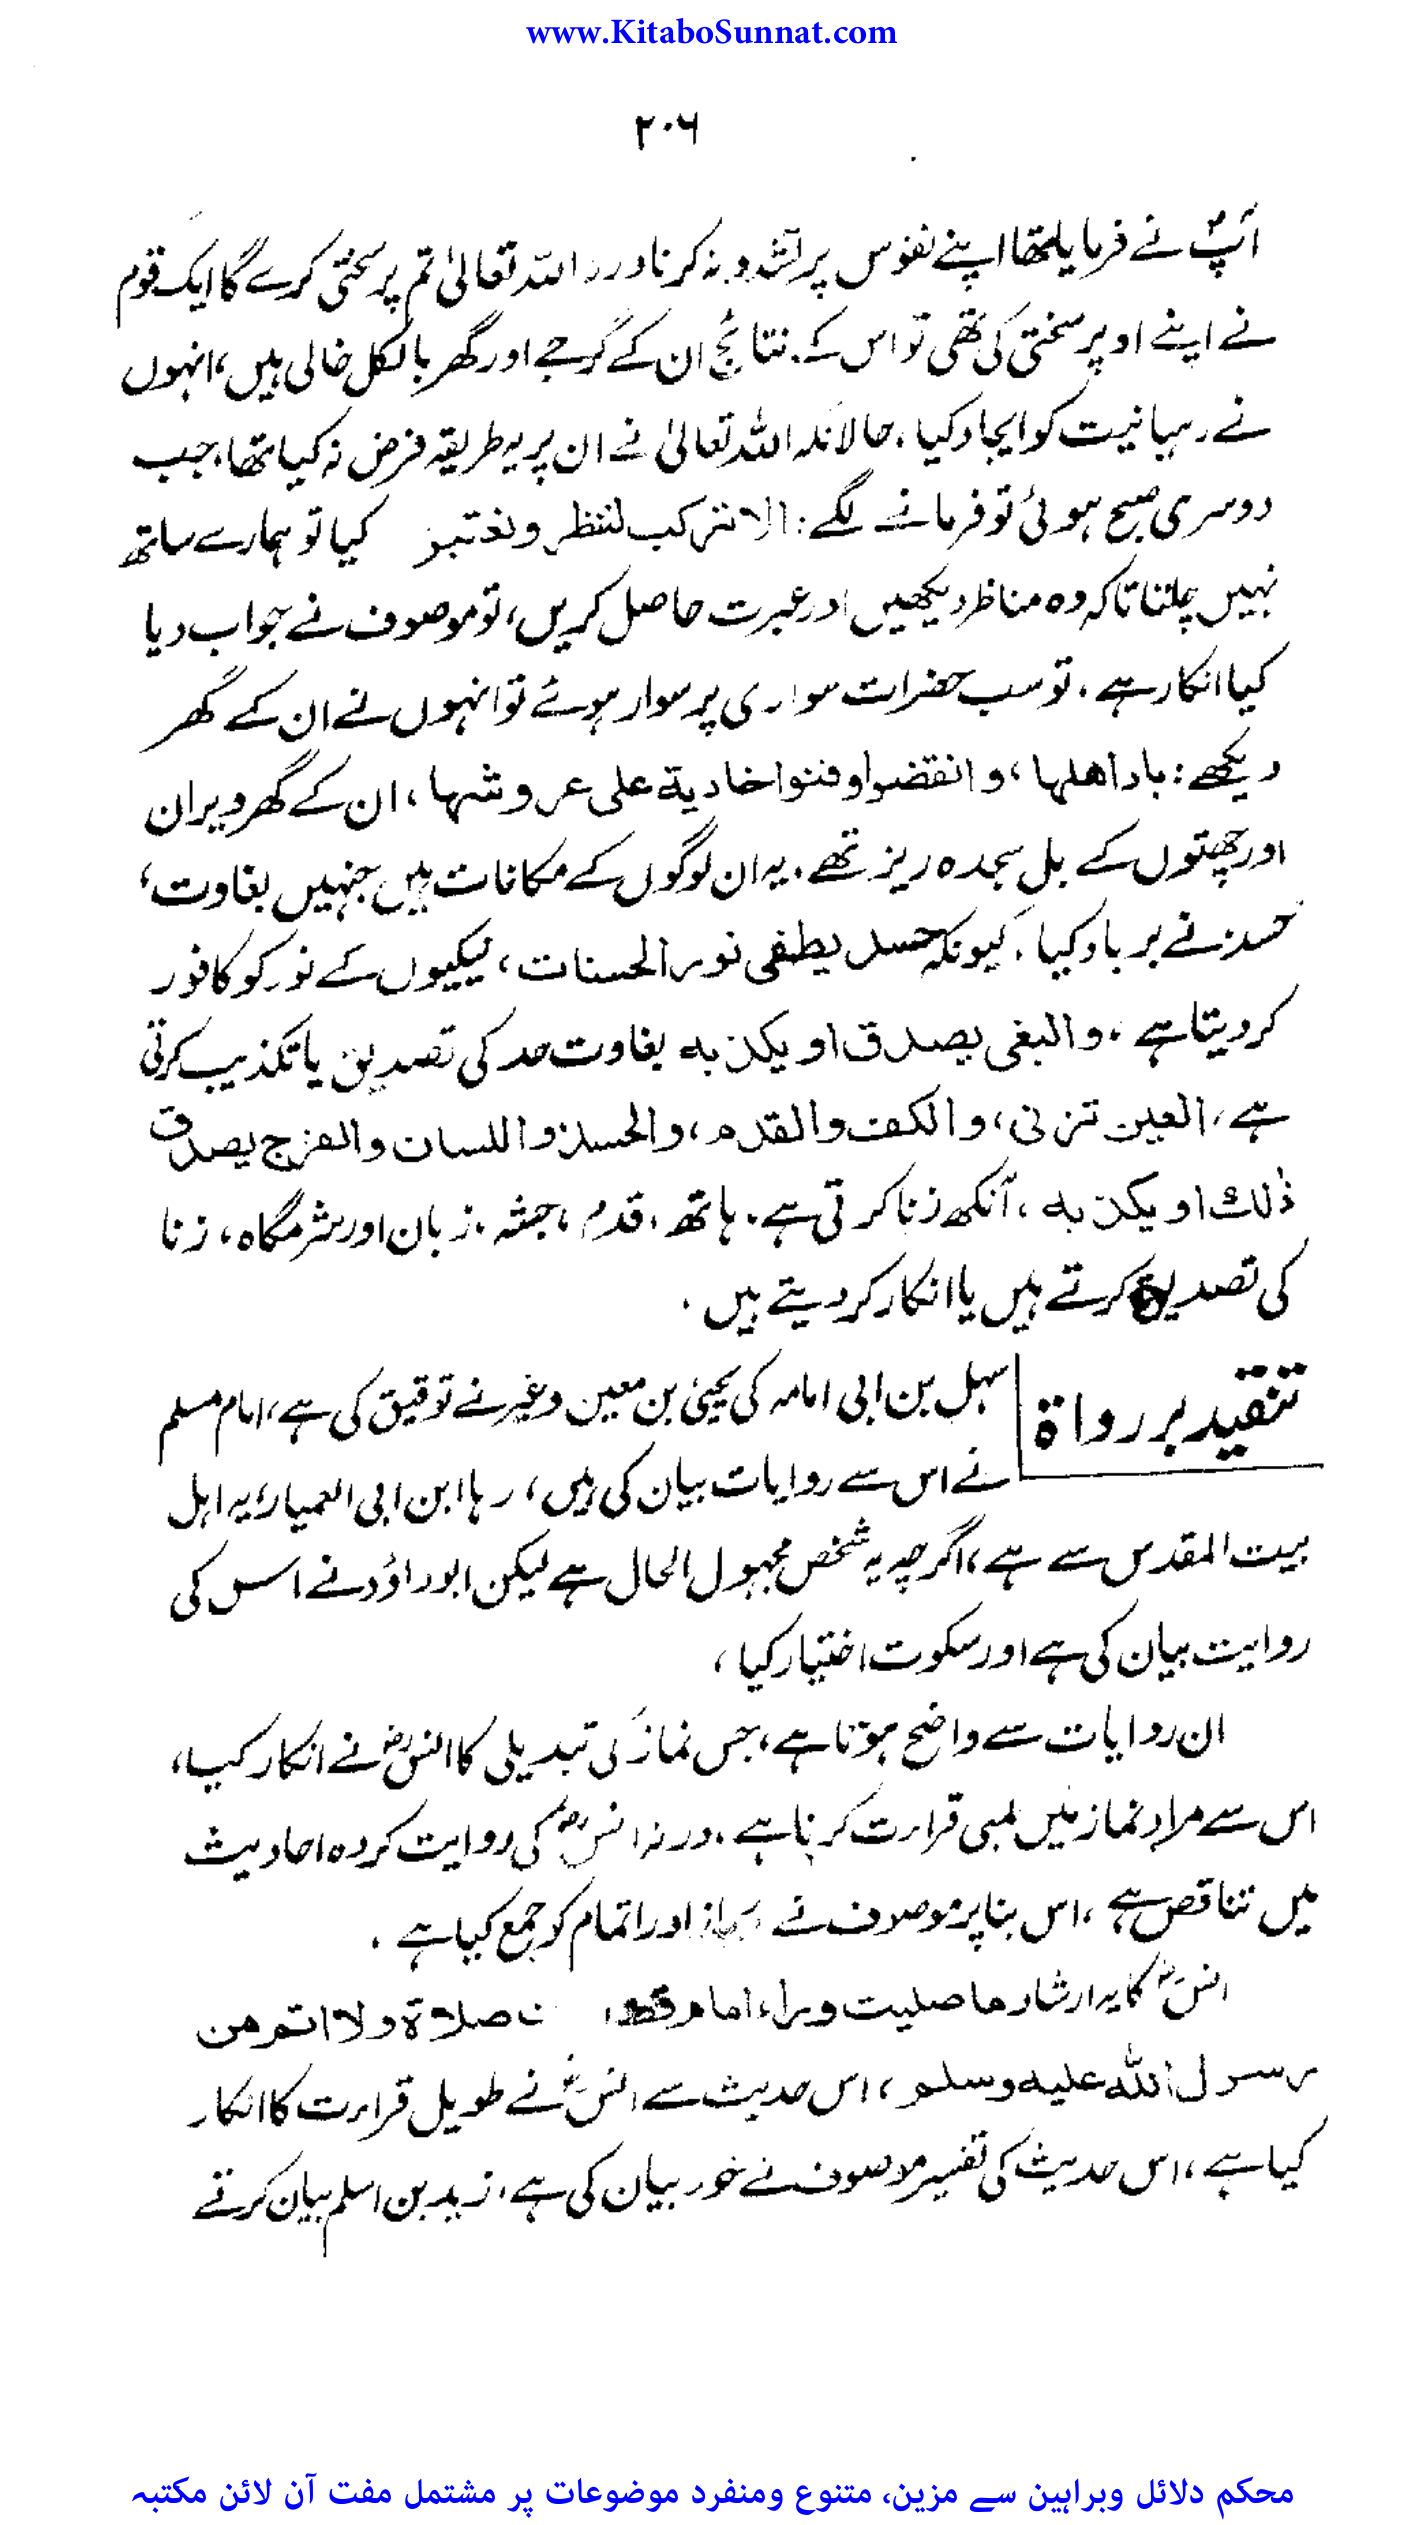 www.KitaboSunnat.com
۲۰۶
آپؐ نے فرمایا تھا اپنے نفوس پر تشدد نہ کرنا ورنہ اللہ تعالیٰ تم پر سختی کرے گا ایک قوم
نے اپنے اوپر سختی کی تھی تو اس کے نتائج ان کے گرجے اور گھر بالکل خالی ہیں، انہوں
نے رہبانیت کو ایجاد کیا، حالانکہ اللہ تعالیٰ نے ان پر یہ طریقہ فرض نہ کیا تھا، جب
دوسری صبح ہوئی تو فرمانے لگے: الا ترکب لننظر ونعتبر کیا تو ہمارے ساتھ
نہیں چلتا تاکہ وہ مناظر دیکھیں اور عبرت حاصل کریں، تو موصوف نے جواب دیا
کیا انکار ہے، تو سب حضرات سواری پر سوار ہوئے تو انہوں نے ان کے گھر
دیکھے: باد اهلها، وانقضوا وفنوا خاوية على عروشها، ان کے گھر ویران
اور چھتوں کے بل سجدہ ریز تھے، یہ ان لوگوں کے مکانات ہیں جنہیں بغاوت،
حسد نے برباد کیا، کیونکہ حسد يطفى نور الحسنات، نیکیوں کے نور کو کافور
کر دیتا ہے، والبغى يصدق او يكذبه بغاوت حسد کی تصدیق یا تکذیب کرتی
ہے، العين تزنى، والكف والقدم، والجسد واللسان والفرج يصدق
ذلك او يكذبه، آنکھ زنا کرتی ہے، ہاتھ، قدم، جثہ، زبان اور شرمگاہ، زنا
کی تصدیق کرتے ہیں یا انکار کر دیتے ہیں۔
تنقید بر رواۃ
سہل بن ابی امامہ کی یحییٰ بن معین وغیرہ نے توثیق کی ہے، امام مسلم
نے اس سے روایات بیان کی ہیں، رہا ابن ابی العمیاء، یہ اہل
بیت المقدس سے ہے، اگرچہ یہ شخص مجہول الحال ہے لیکن ابوداؤد نے اس کی
روایت بیان کی ہے اور سکوت اختیار کیا،
ان روایات سے واضح ہوتا ہے، جس نماز کی تبدیلی کا انسؓ نے انکار کیا،
اس سے مراد نماز میں لمبی قراءت کرنا ہے، ورنہ انسؓ کی روایت کردہ احادیث
میں تناقض ہے، اس بنا پر موصوف نے ایجاز اور اتمام کو جمع کیا ہے۔
انسؓ کا یہ ارشاد ما صليت وراء امام قط صلاة ولا اتم من
رسول الله عليه وسلم، اس حدیث سے انسؓ نے طویل قراءت کا انکار
کیا ہے، اس حدیث کی تفسیر موصوف نے خود بیان کی ہے، زید بن اسلم بیان کرتے
محکم دلائل وبراہین سے مزین، متنوع ومنفرد موضوعات پر مشتمل مفت آن لائن مکتبہ